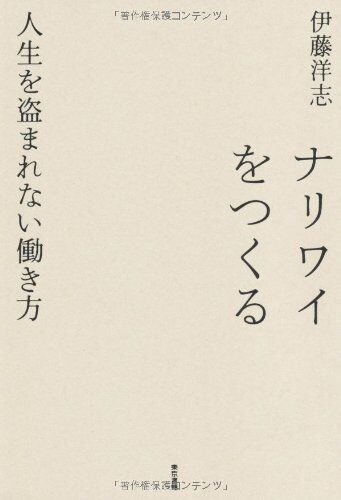 「著作権保護コンテンツ」
伊藤洋志
ナリワイ
をつくる
人生を盗まれない働き方
東京書籍
「著作権保護コンテンツ」